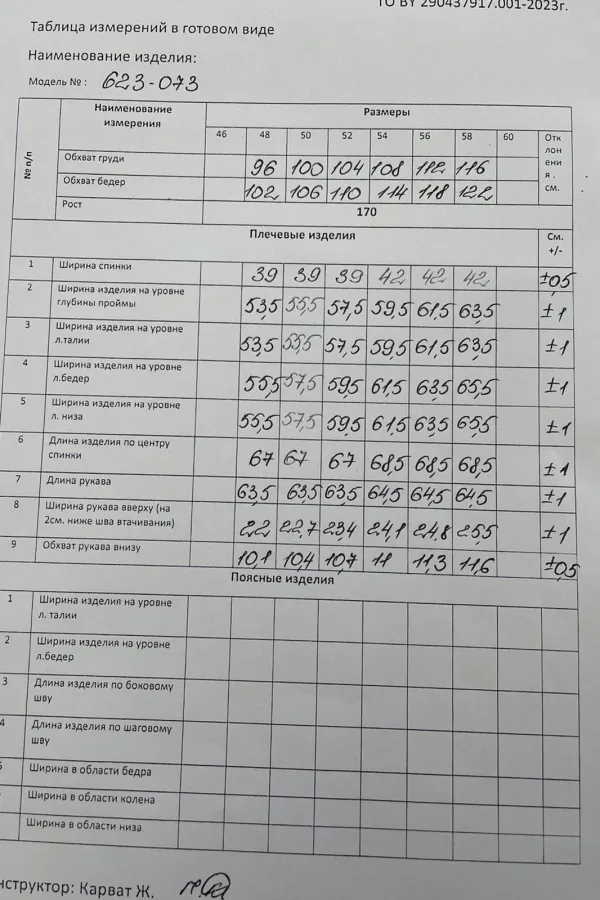 ТО BY 290437917.001-2023г.
Таблица измерений в готовом виде
Наименование изделия:
Модель № : 623-073
№ п/п Наименование измерения Размеры
46 48 50 52 54 56 58 60 Отк лон ени я . см.
Обхват груди 96 100 104 108 112 116
Обхват бедер 102 106 110 114 118 122
Рост 170
Плечевые изделия См. +/-
1 Ширина спинки 39 39 39 42 42 42 ±0,5
2 Ширина изделия на уровне
глубины проймы 53,5 55,5 57,5 59,5 61,5 63,5 ±1
3 Ширина изделия на уровне
л.талии 53,5 55,5 57,5 59,5 61,5 63,5 ±1
4 Ширина изделия на уровне
л.бедер 55,5 57,5 59,5 61,5 63,5 65,5 ±1
5 Ширина изделия на уровне
л. низа 55,5 57,5 59,5 61,5 63,5 65,5 ±1
6 Длина изделия по центру
спинки 67 67 67 68,5 68,5 68,5 ±1
7 Длина рукава 63,5 63,5 63,5 64,5 64,5 64,5 ±1
8 Ширина рукава вверху (на
2см. ниже шва втачивания) 22 22,7 23,4 24,1 24,8 25,5 ±1
9 Обхват рукава внизу 10,1 10,4 10,7 11 11,3 11,6 ±0,5
Поясные изделия
1 Ширина изделия на уровне
л. талии
2 Ширина изделия на уровне
л.бедер
3 Длина изделия по боковому
шву
4 Длина изделия по шаговому
шву
Ширина в области бедра
Ширина в области колена
Ширина в области низа
нструктор: Карват Ж.